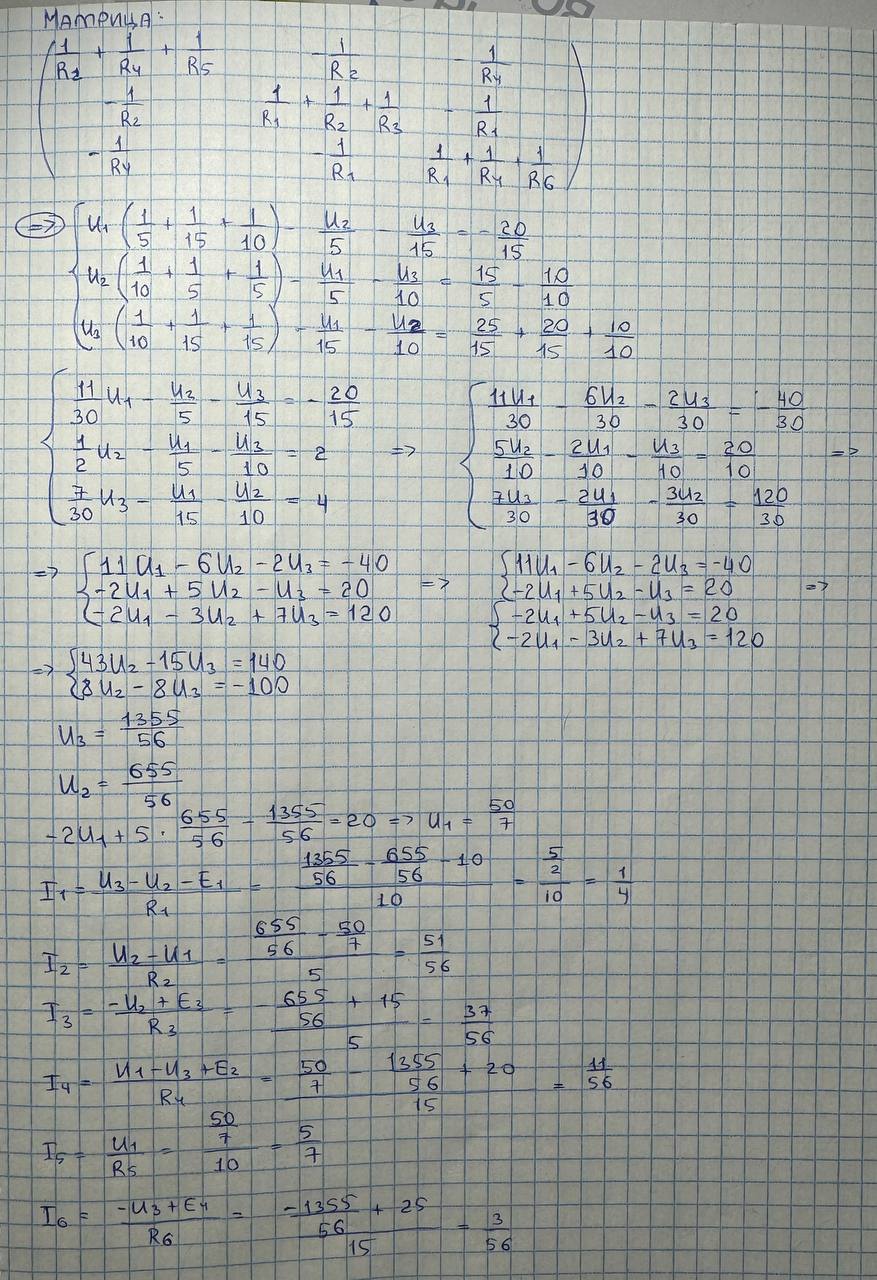 МАТРИЦА:
1/R2 + 1/R4 + 1/R5   - 1/R2   - 1/R4
- 1/R2   1/R1 + 1/R2 + 1/R3   - 1/R1
- 1/R4   - 1/R1   1/R1 + 1/R4 + 1/R6
=> { U1 (1/5 + 1/15 + 1/10) - U2/5 - U3/15 = - 20/15
U2 (1/10 + 1/5 + 1/5) - U1/5 - U3/10 = 15/5 - 10/10
U3 (1/10 + 1/15 + 1/15) - U1/15 - U2/10 = 25/15 + 20/15 + 10/10
{ 11/30 U1 - U2/5 - U3/15 = - 20/15   { 11U1/30 - 6U2/30 - 2U3/30 = - 40/30
1/2 U2 - U1/5 - U3/10 = 2   =>   5U2/10 - 2U1/10 - U3/10 = 20/10   =>
7/30 U3 - U1/15 - U2/10 = 4   7U3/30 - 2U1/30 - 3U2/30 = 120/30
=> { 11U1 - 6U2 - 2U3 = -40   { 11U1 - 6U2 - 2U3 = -40
-2U1 + 5U2 - U3 = 20   =>   -2U1 + 5U2 - U3 = 20   =>
-2U1 - 3U2 + 7U3 = 120   { -2U1 + 5U2 - U3 = 20
-2U1 - 3U2 + 7U3 = 120
=> { 43U2 - 15U3 = 140
8U2 - 8U3 = -100
U3 = 1355/56
U2 = 655/56
-2U1 + 5 · 655/56 - 1355/56 = 20 => U1 = 50/7
I1 = (U3 - U2 - E1)/R1 = (1355/56 - 655/56 - 10)/10 = (5/2)/10 = 1/4
I2 = (U2 - U1)/R2 = (655/56 - 50/7)/5 = 51/56
I3 = (-U2 + E3)/R3 = (- 655/56 + 15)/5 = 37/56
I4 = (U1 - U3 + E2)/R4 = (50/7 - 1355/56 + 20)/15 = 11/56
I5 = U1/R5 = (50/7)/10 = 5/7
I6 = (-U3 + E4)/R6 = (-1355/56 + 25)/15 = 3/56